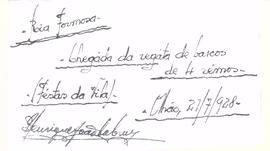 - Ria Formosa -
- Chegada da regata de barcos
de 4 remos -
(Festas da Vila) - Olhão, 27/7/928 -